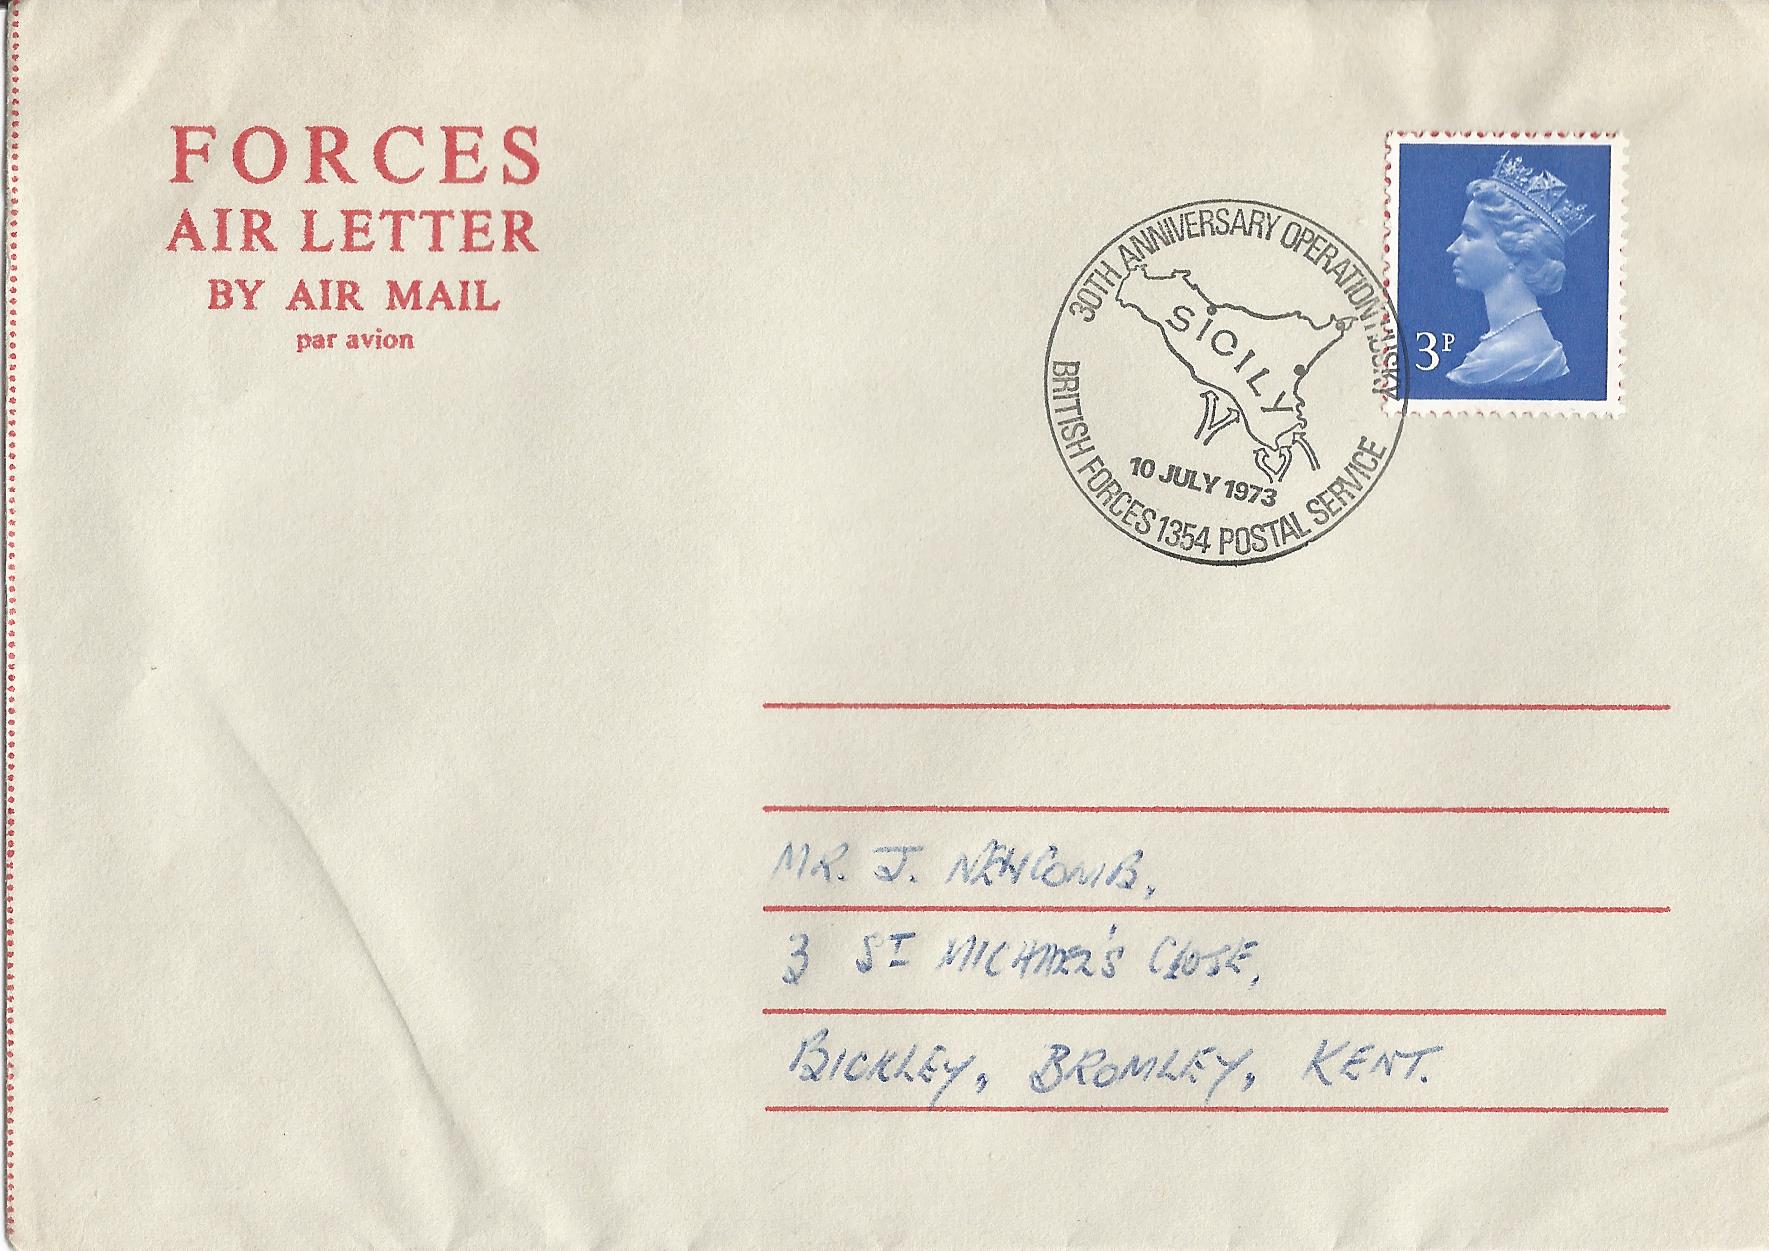 FORCES
AIR LETTER
BY AIR MAIL
par avion
30TH ANNIVERSARY OPERATION HUSKY
SICILY
10 JULY 1973
BRITISH FORCES 1354 POSTAL SERVICE
3P
MR. J. NEWCOMB,
3 ST MICHAEL'S CLOSE,
BICKLEY, BROMLEY, KENT.